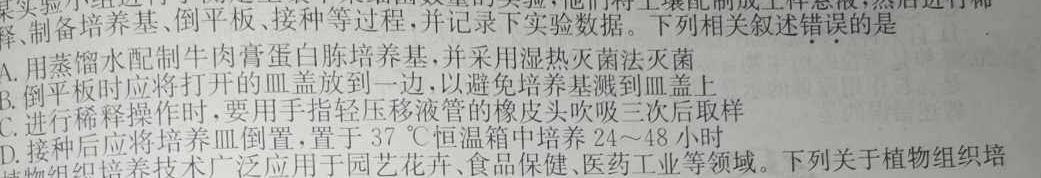 释、制备培养基、倒平板、接种等过程,并记录下实验数据。下列相关叙述错误的是
A. 用蒸馏水配制牛肉膏蛋白胨培养基,并采用湿热灭菌法灭菌
B. 倒平板时应将打开的皿盖放到一边,以避免培养基溅到皿盖上
C. 进行稀释操作时,要用手指轻压移液管的橡皮头吹吸三次后取样
D. 接种后应将培养皿倒置,置于 37 ℃恒温箱中培养 24~48 小时
植物组织培养技术广泛应用于园艺花卉、食品保健、医药工业等领域。下列关于植物组织培